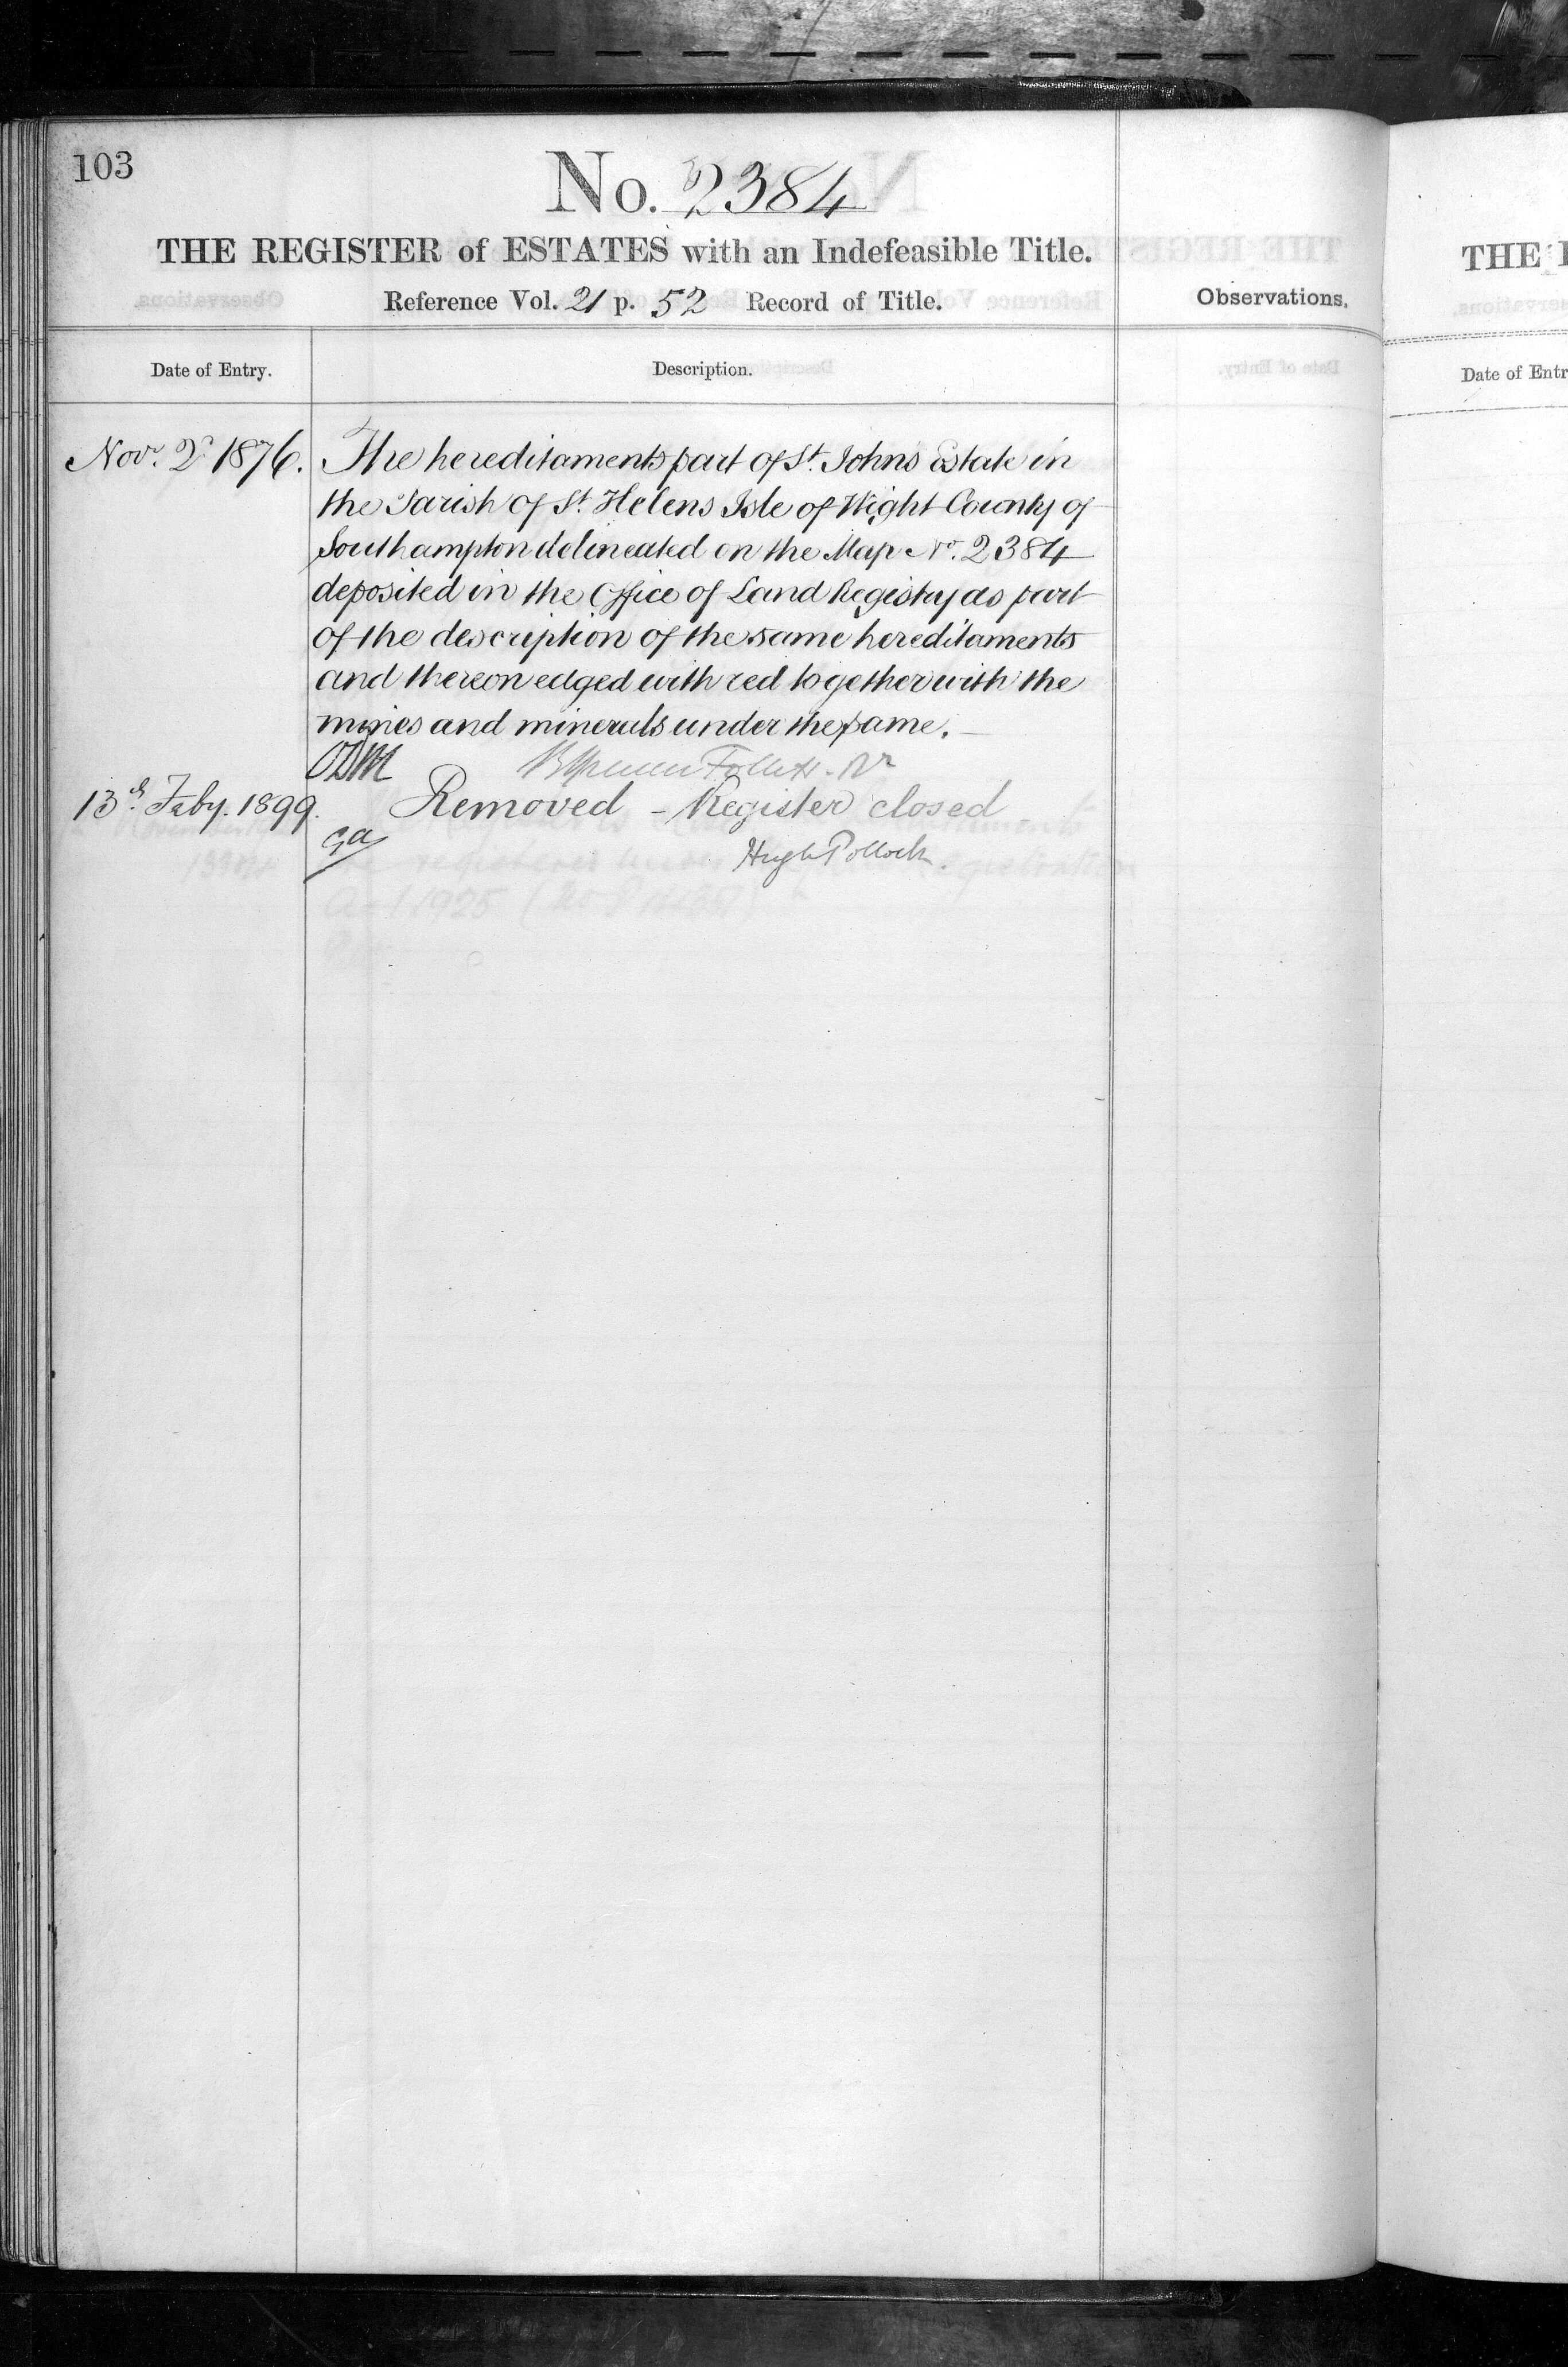 103
No. 2384
THE REGISTER of ESTATES with an Indefeasible Title.
Reference Vol. 21 p. 52 Record of Title.
Observations.
Date of Entry.
Description.
Novr. 2d 1876.
The hereditaments part of St. Johns Estate in
the Parish of St. Helens Isle of Wight County of
Southampton delineated on the Map No. 2384
deposited in the Office of Land Registry as part
of the description of the same hereditaments
and thereon edged with red together with the
mines and minerals under the same.
Follett
13th Feby. 1899.
Removed - Register closed
Hugh Pollock.
Act 1925
THE
Date of Entr